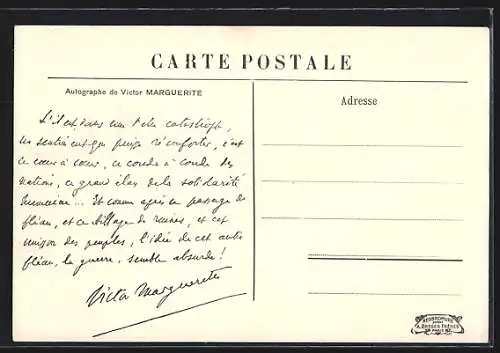 CARTE POSTALE
Autographe de Victor MARGUERITE
Adresse
S'il est, dans une telle catastrophe,
un sentiment qui puisse réconforter, c'est
ce cœur à cœur, ce coude à coude des
nations, ce grand élan de la solidarité
humaine... Et comme après ce passage du
fléau, et ce village de ruines, et cet
unisson des peuples, l'idée de cet autre
fléau, la guerre, semble absurde!
Victor Margueritte